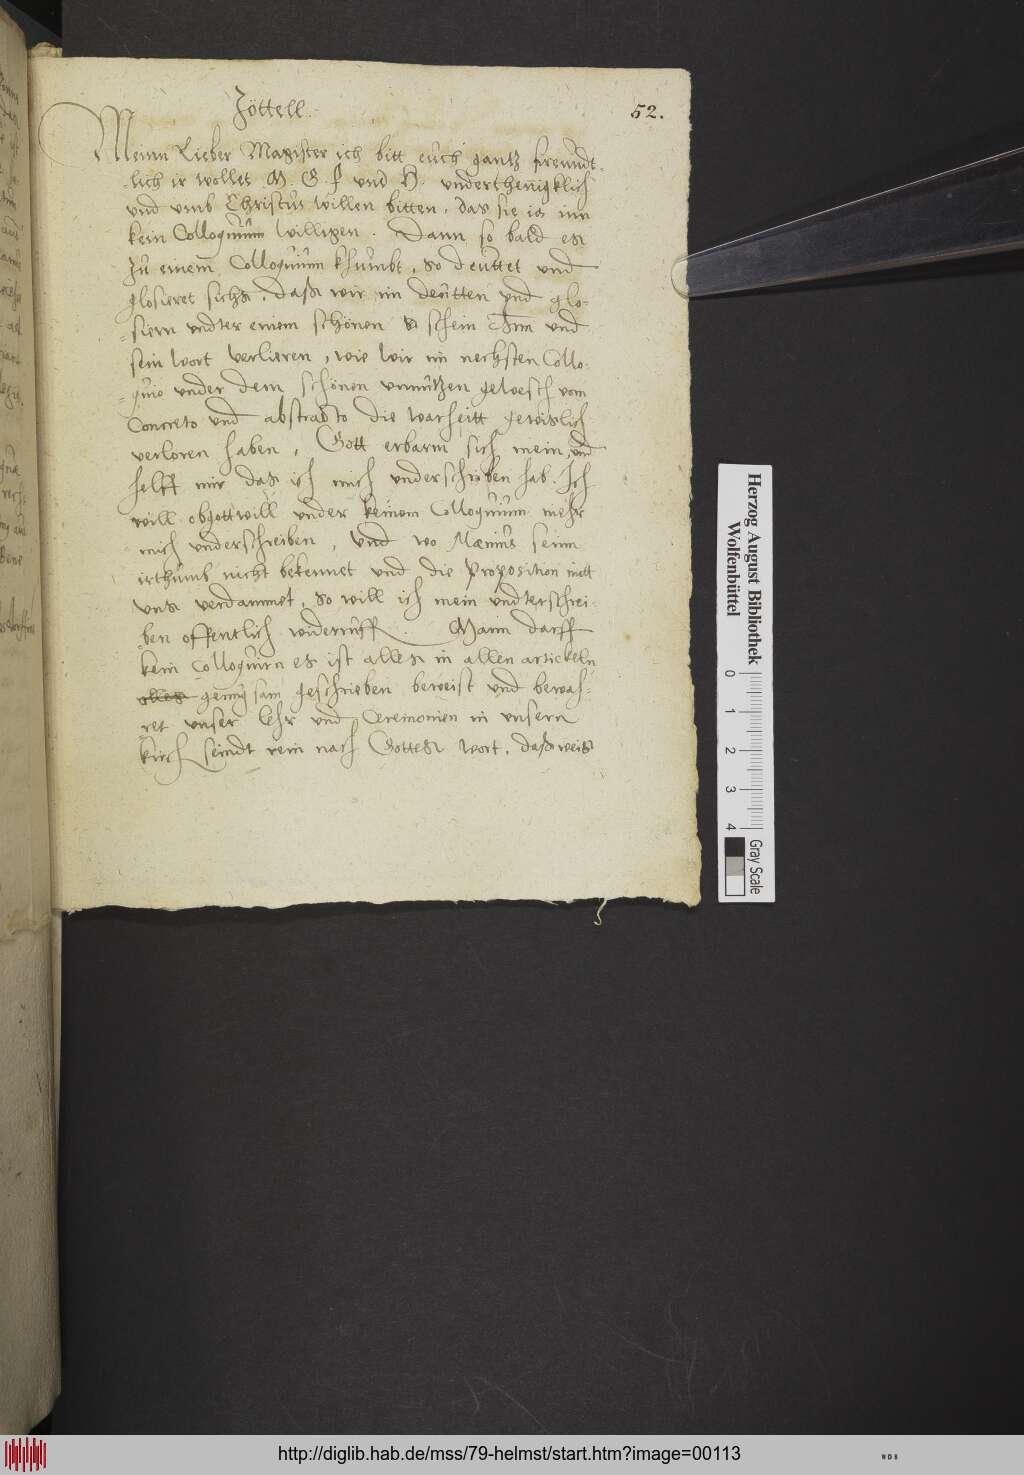 Zöttell.
52.
Meinn Lieber Magister ich bitt euch gantz freundt-
lich ir wollet M. G. F und H. underthenigklich
und umb Christus willen bitten, das sie ja inn
kein Colloquium willigen. Dann so bald es
zu einem Colloquium khumbt, so deuttet und
glosieret sichs, daß wir im deutten und glo-
siern undter einem schönen schein und
sein wort verlieren, wie wir im nechsten Collo-
quio under dem schönen unnützen gewesch vom
Concreto und abstracto die warheitt gewislich
verloren haben, Gott erbarm sich mein, und
helff mir das ich mich underschriben hab. Ich
will obgottwill under keinem Colloquium mehr
mich underschreiben, und wo Maenius seinn
irthumb nicht bekennet und die Proposition mitt
uns verdammet, so will ich mein undterschrei-
ben offentlich widerruff. Mann darff
kein Colloquirn es ist alles in allen artickeln
genug sam geschrieben beweist und bewah-
ret unser lehr und Ceremonien in unsern
kirch seindt rein nach Gottes wort, daß weis
Herzog August Bibliothek
Wolfenbüttel
0 1 2 3 4
Gray Scale
http://diglib.hab.de/mss/79-helmst/start.htm?image=00113